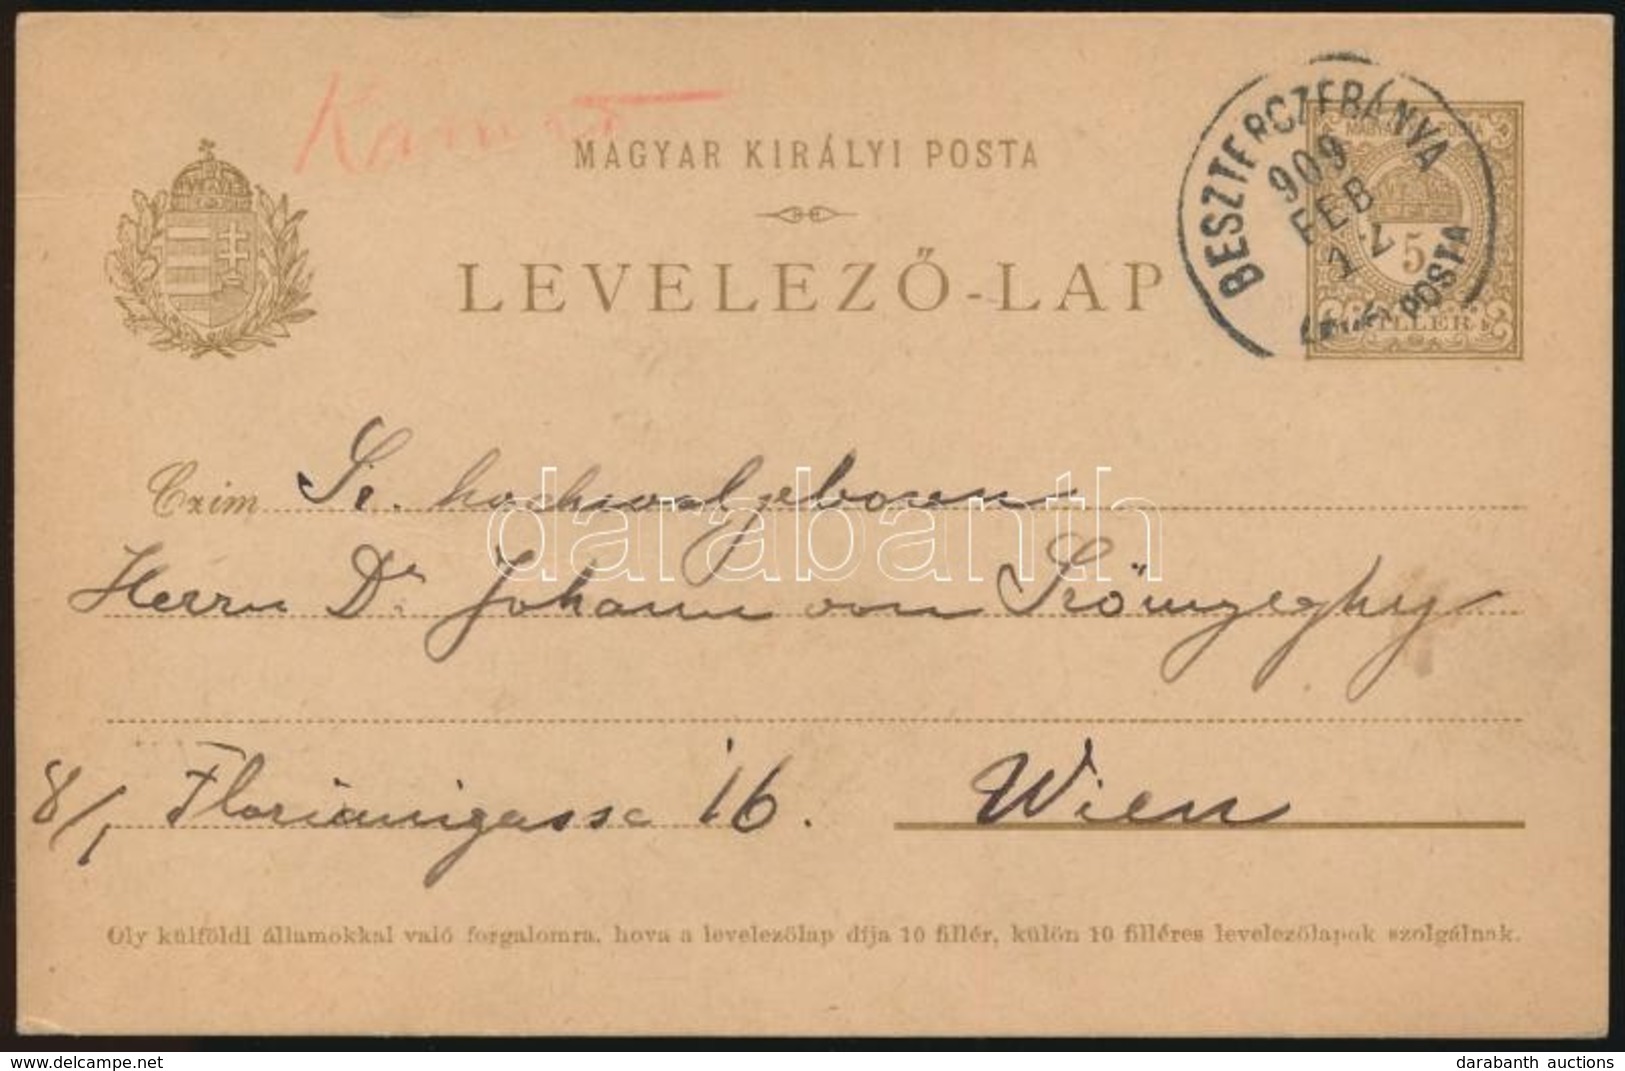 MAGYAR KIRÁLYI POSTA
LEVELEZŐ-LAP
BESZTERCZEBÁNYA
909
FEB
POSTA
MAGYAR POSTA
5
FILLÉR
Czim Sr. hochwolgeboren
Herrn Dr Johann von Szönyeghy
8/1 Florianigasse 16. Wien
Oly külföldi államokkal való forgalomra, hova a levelezőlap díja 10 fillér, külön 10 filléres levelezőlapok szolgálnak.
darabanth
delcampe.net
darabanth auctions